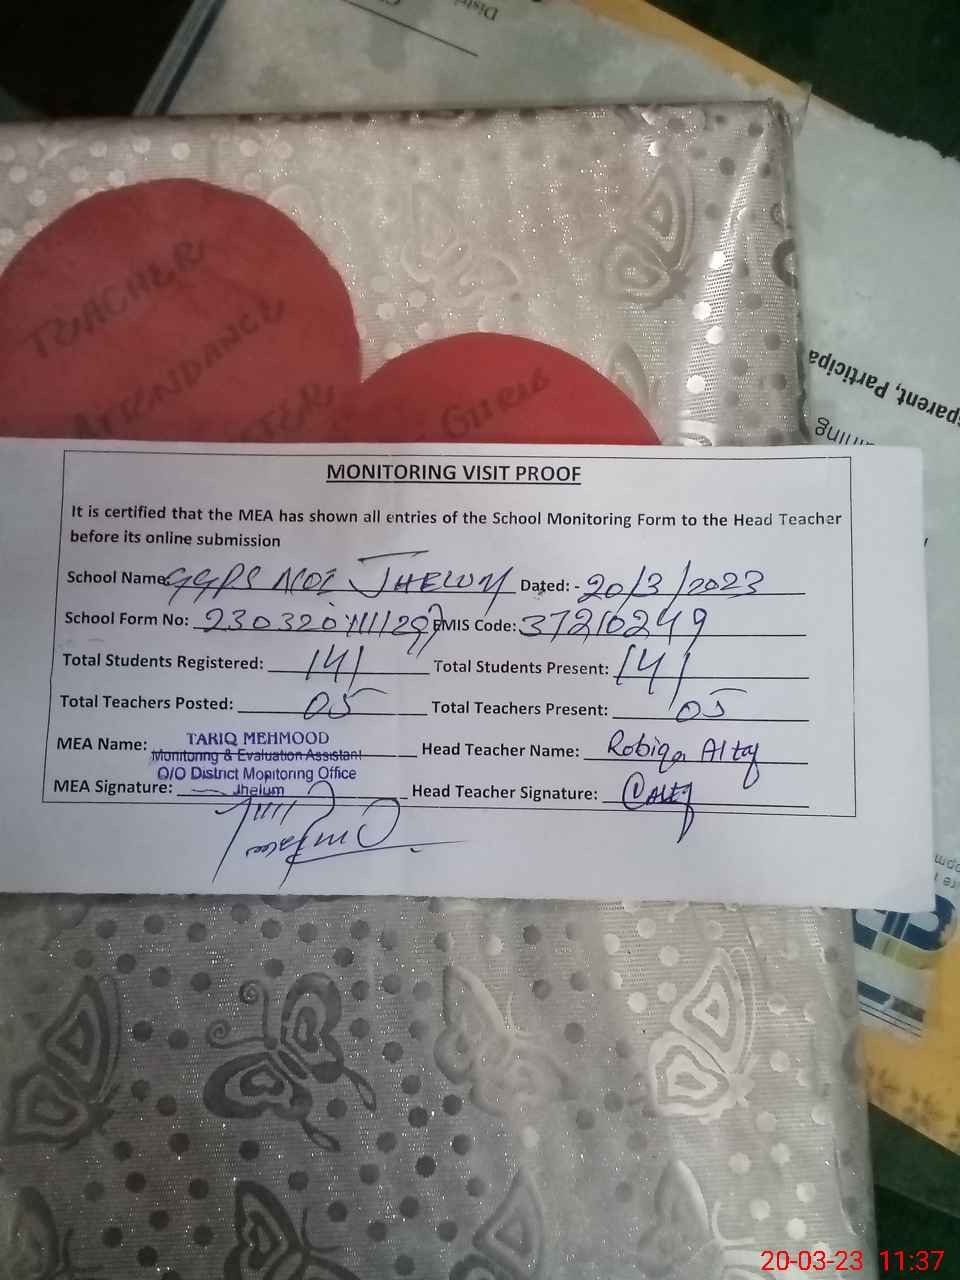 Distri
TEACHER
ATTENDANCE
GURIE
parent, Participa
MONITORING VISIT PROOF
It is certified that the MEA has shown all entries of the School Monitoring Form to the Head Teacher
before its online submission
School Name: GGPS NO1 JHELUM Dated: - 20/3/2023
School Form No: EMIS Code: 37210249
Total Students Registered: 141 Total Students Present: 141
Total Teachers Posted: 05 Total Teachers Present: 05
MEA Name: TARIQ MEHMOOD Head Teacher Name: Robiqa Altaf
Monitoring & Evaluation Assistant
O/O District Monitoring Office
MEA Signature: Jhelum Head Teacher Signature:
20-03-23 11:37